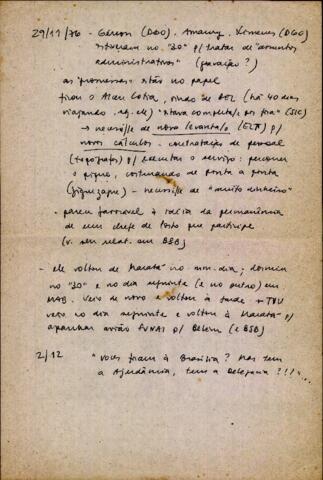 29/11/76 - Gerson (DGO). Amaury. Ximenes (DGO)
estiveram no "30" p/ tratar de "assuntos
administrativos" (gravação?)
as "promessas" estão no papel
ficou o Alceu Cotia, vindo de BEL (há 40 dias
viajando. sg. ele) "estava completa/e por fora" (SIC)
→ necessi//e de novo levanta/o (ELT) p/
novos cálculos - contratação de pessoal
(topógrafos) p/ executar o serviço: percorrer
o pique, costurando de ponta a ponta
(ziguezague) - necessi//e de "muito dinheiro"
- parece favorável à idéia da permanência
de um chefe de Posto que participe
(v. seu relat. em BSB)
- ele voltou de Marabá no mm. dia; dormiu
no "30" e no dia seguinte (e no outro) em
MAB. Veio de novo e voltou à tarde
veio no dia seguinte e voltou à Marabá p/
apanhar avião FUNAI p/ Belém (e BSB)
2/12 "Vocês foram à Brasília? Mas tem
a Ajudância, tem a Delegacia?!!"...